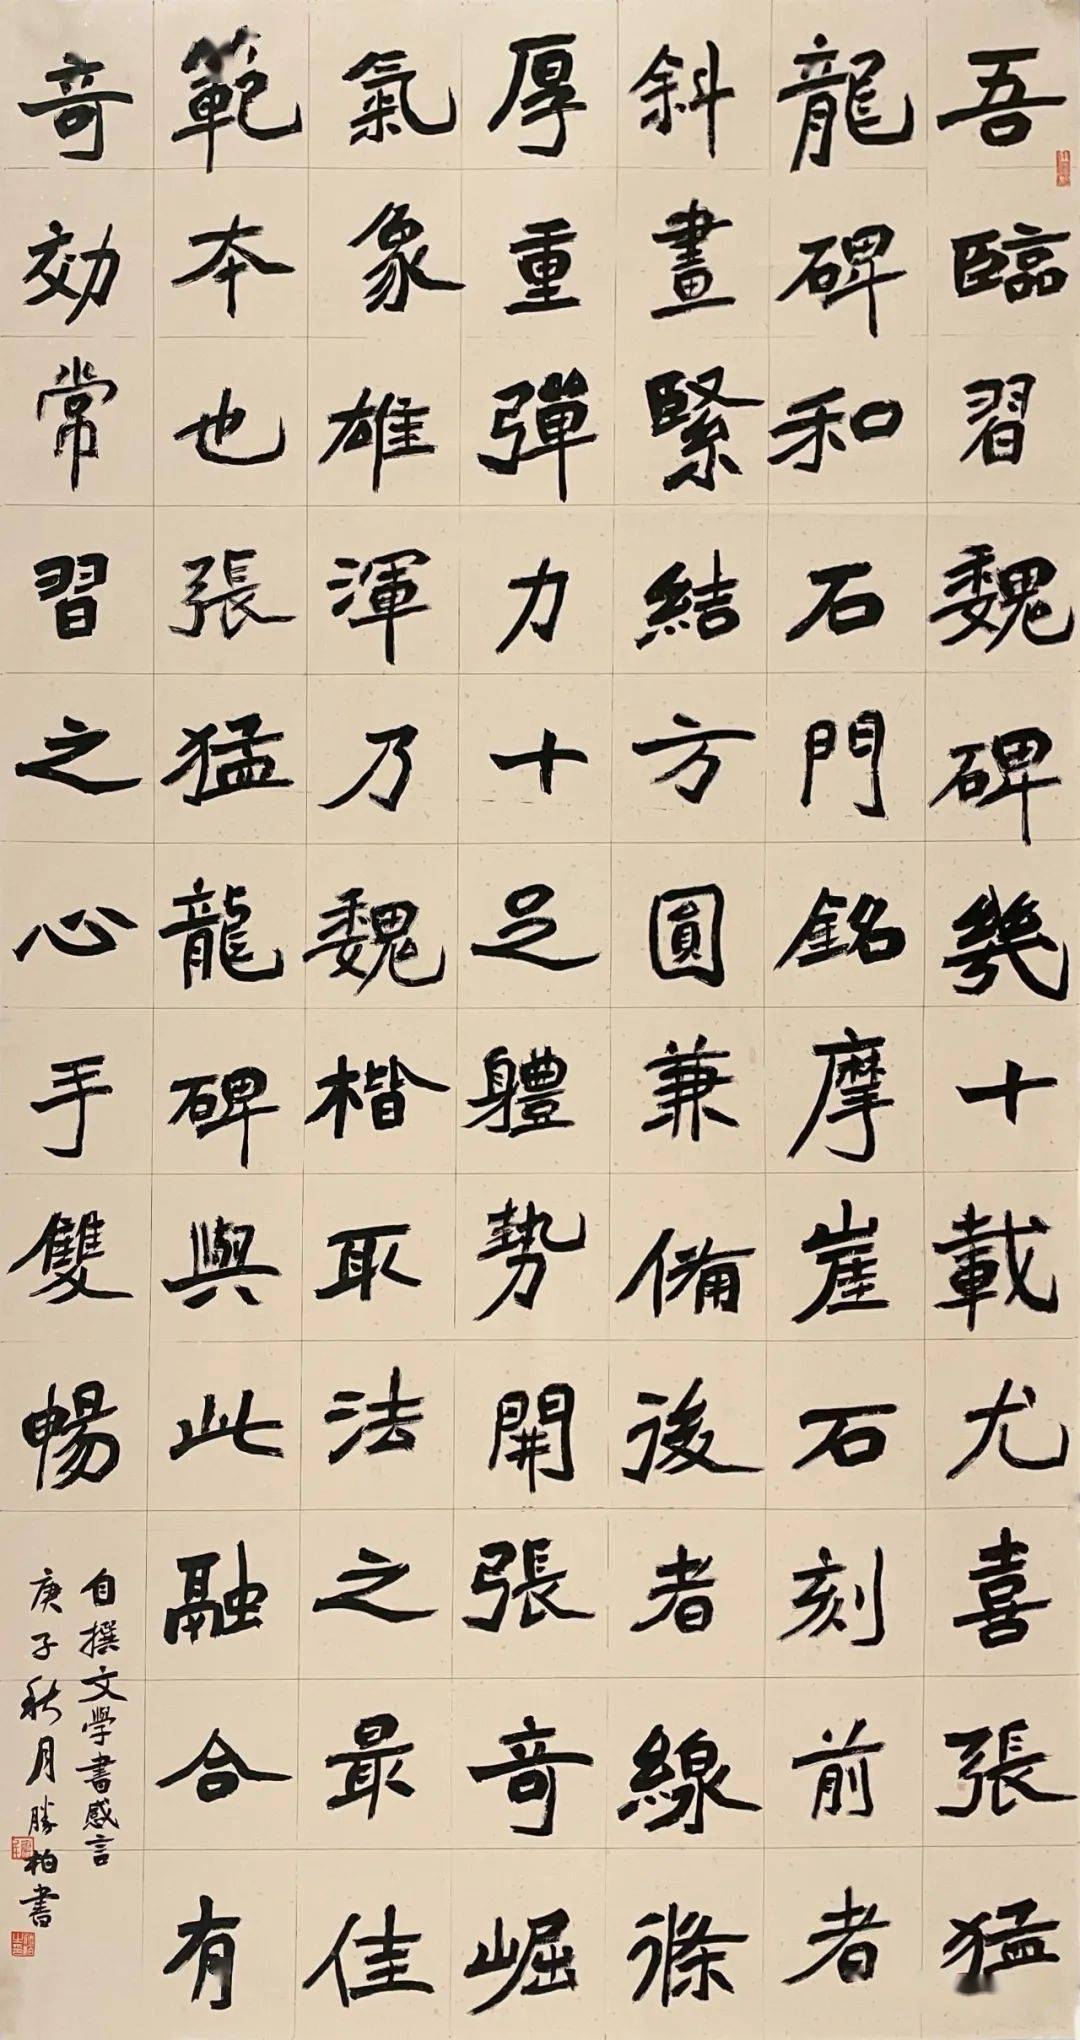 吾臨習魏碑幾十載尤喜張猛
龍碑和石門銘摩崖石刻前者
斜畫緊結方圓兼備後者線條
厚重彈力十足體勢開張奇崛
氣象雄渾乃魏楷取法之最佳
範本也張猛龍碑與此融合有
奇効常習之心手雙暢
自撰文學書感言
庚子秋月勝柏書